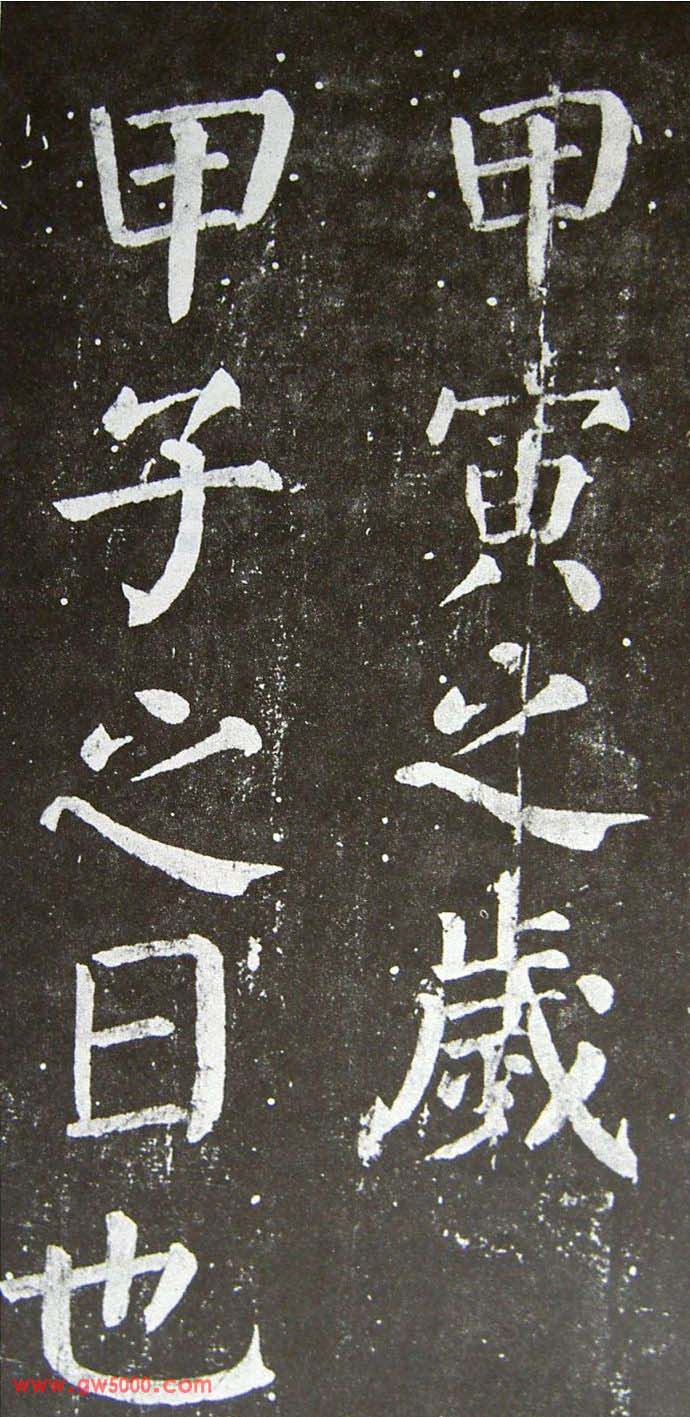 甲寅之歲
甲子之日也
www.gw5000.com